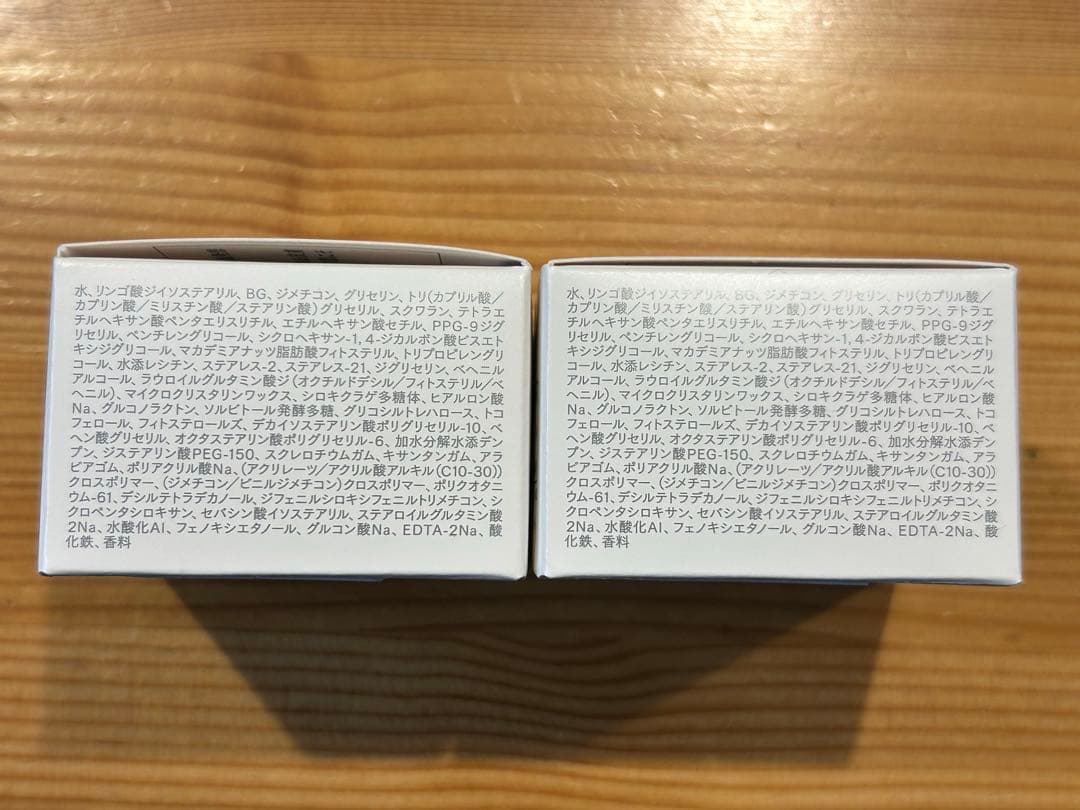 水、リンゴ酸ジイソステアリル、BG、ジメチコン、グリセリン、トリ(カプリル酸/
カプリン酸/ミリスチン酸/ステアリン酸)グリセリル、スクワラン、テトラエ
チルヘキサン酸ペンタエリスリチル、エチルヘキサン酸セチル、PPG-9ジグ
リセリル、ペンチレングリコール、シクロヘキサン-1, 4-ジカルボン酸ビスエト
キシジグリコール、マカデミアナッツ脂肪酸フィトステリル、トリプロピレングリ
コール、水添レシチン、ステアレス-2、ステアレス-21、ジグリセリン、ベヘニル
アルコール、ラウロイルグルタミン酸ジ(オクチルドデシル/フィトステリル/ベ
ヘニル)、マイクロクリスタリンワックス、シロキクラゲ多糖体、ヒアルロン酸
Na、グルコノラクトン、ソルビトール発酵多糖、グリコシルトレハロース、トコ
フェロール、フィトステロールズ、デカイソステアリン酸ポリグリセリル-10、ベ
ヘン酸グリセリル、オクタステアリン酸ポリグリセリル-6、加水分解水添デン
プン、ジステアリン酸PEG-150、スクレロチウムガム、キサンタンガム、アラ
ビアゴム、ポリアクリル酸Na、(アクリレーツ/アクリル酸アルキル(C10-30))
クロスポリマー、(ジメチコン/ビニルジメチコン)クロスポリマー、ポリクオタニ
ウム-61、デシルテトラデカノール、ジフェニルシロキシフェニルトリメチコン、シ
クロペンタシロキサン、セバシン酸イソステアリル、ステアロイルグルタミン酸
2Na、水酸化Al、フェノキシエタノール、グルコン酸Na、EDTA-2Na、酸
化鉄、香料
水、リンゴ酸ジイソステアリル、BG、ジメチコン、グリセリン、トリ(カプリル酸/
カプリン酸/ミリスチン酸/ステアリン酸)グリセリル、スクワラン、テトラエ
チルヘキサン酸ペンタエリスリチル、エチルヘキサン酸セチル、PPG-9ジグ
リセリル、ペンチレングリコール、シクロヘキサン-1, 4-ジカルボン酸ビスエト
キシジグリコール、マカデミアナッツ脂肪酸フィトステリル、トリプロピレングリ
コール、水添レシチン、ステアレス-2、ステアレス-21、ジグリセリン、ベヘニル
アルコール、ラウロイルグルタミン酸ジ(オクチルドデシル/フィトステリル/ベ
ヘニル)、マイクロクリスタリンワックス、シロキクラゲ多糖体、ヒアルロン酸
Na、グルコノラクトン、ソルビトール発酵多糖、グリコシルトレハロース、トコ
フェロール、フィトステロールズ、デカイソステアリン酸ポリグリセリル-10、ベ
ヘン酸グリセリル、オクタステアリン酸ポリグリセリル-6、加水分解水添デン
プン、ジステアリン酸PEG-150、スクレロチウムガム、キサンタンガム、アラ
ビアゴム、ポリアクリル酸Na、(アクリレーツ/アクリル酸アルキル(C10-30))
クロスポリマー、(ジメチコン/ビニルジメチコン)クロスポリマー、ポリクオタニ
ウム-61、デシルテトラデカノール、ジフェニルシロキシフェニルトリメチコン、シ
クロペンタシロキサン、セバシン酸イソステアリル、ステアロイルグルタミン酸
2Na、水酸化Al、フェノキシエタノール、グルコン酸Na、EDTA-2Na、酸
化鉄、香料